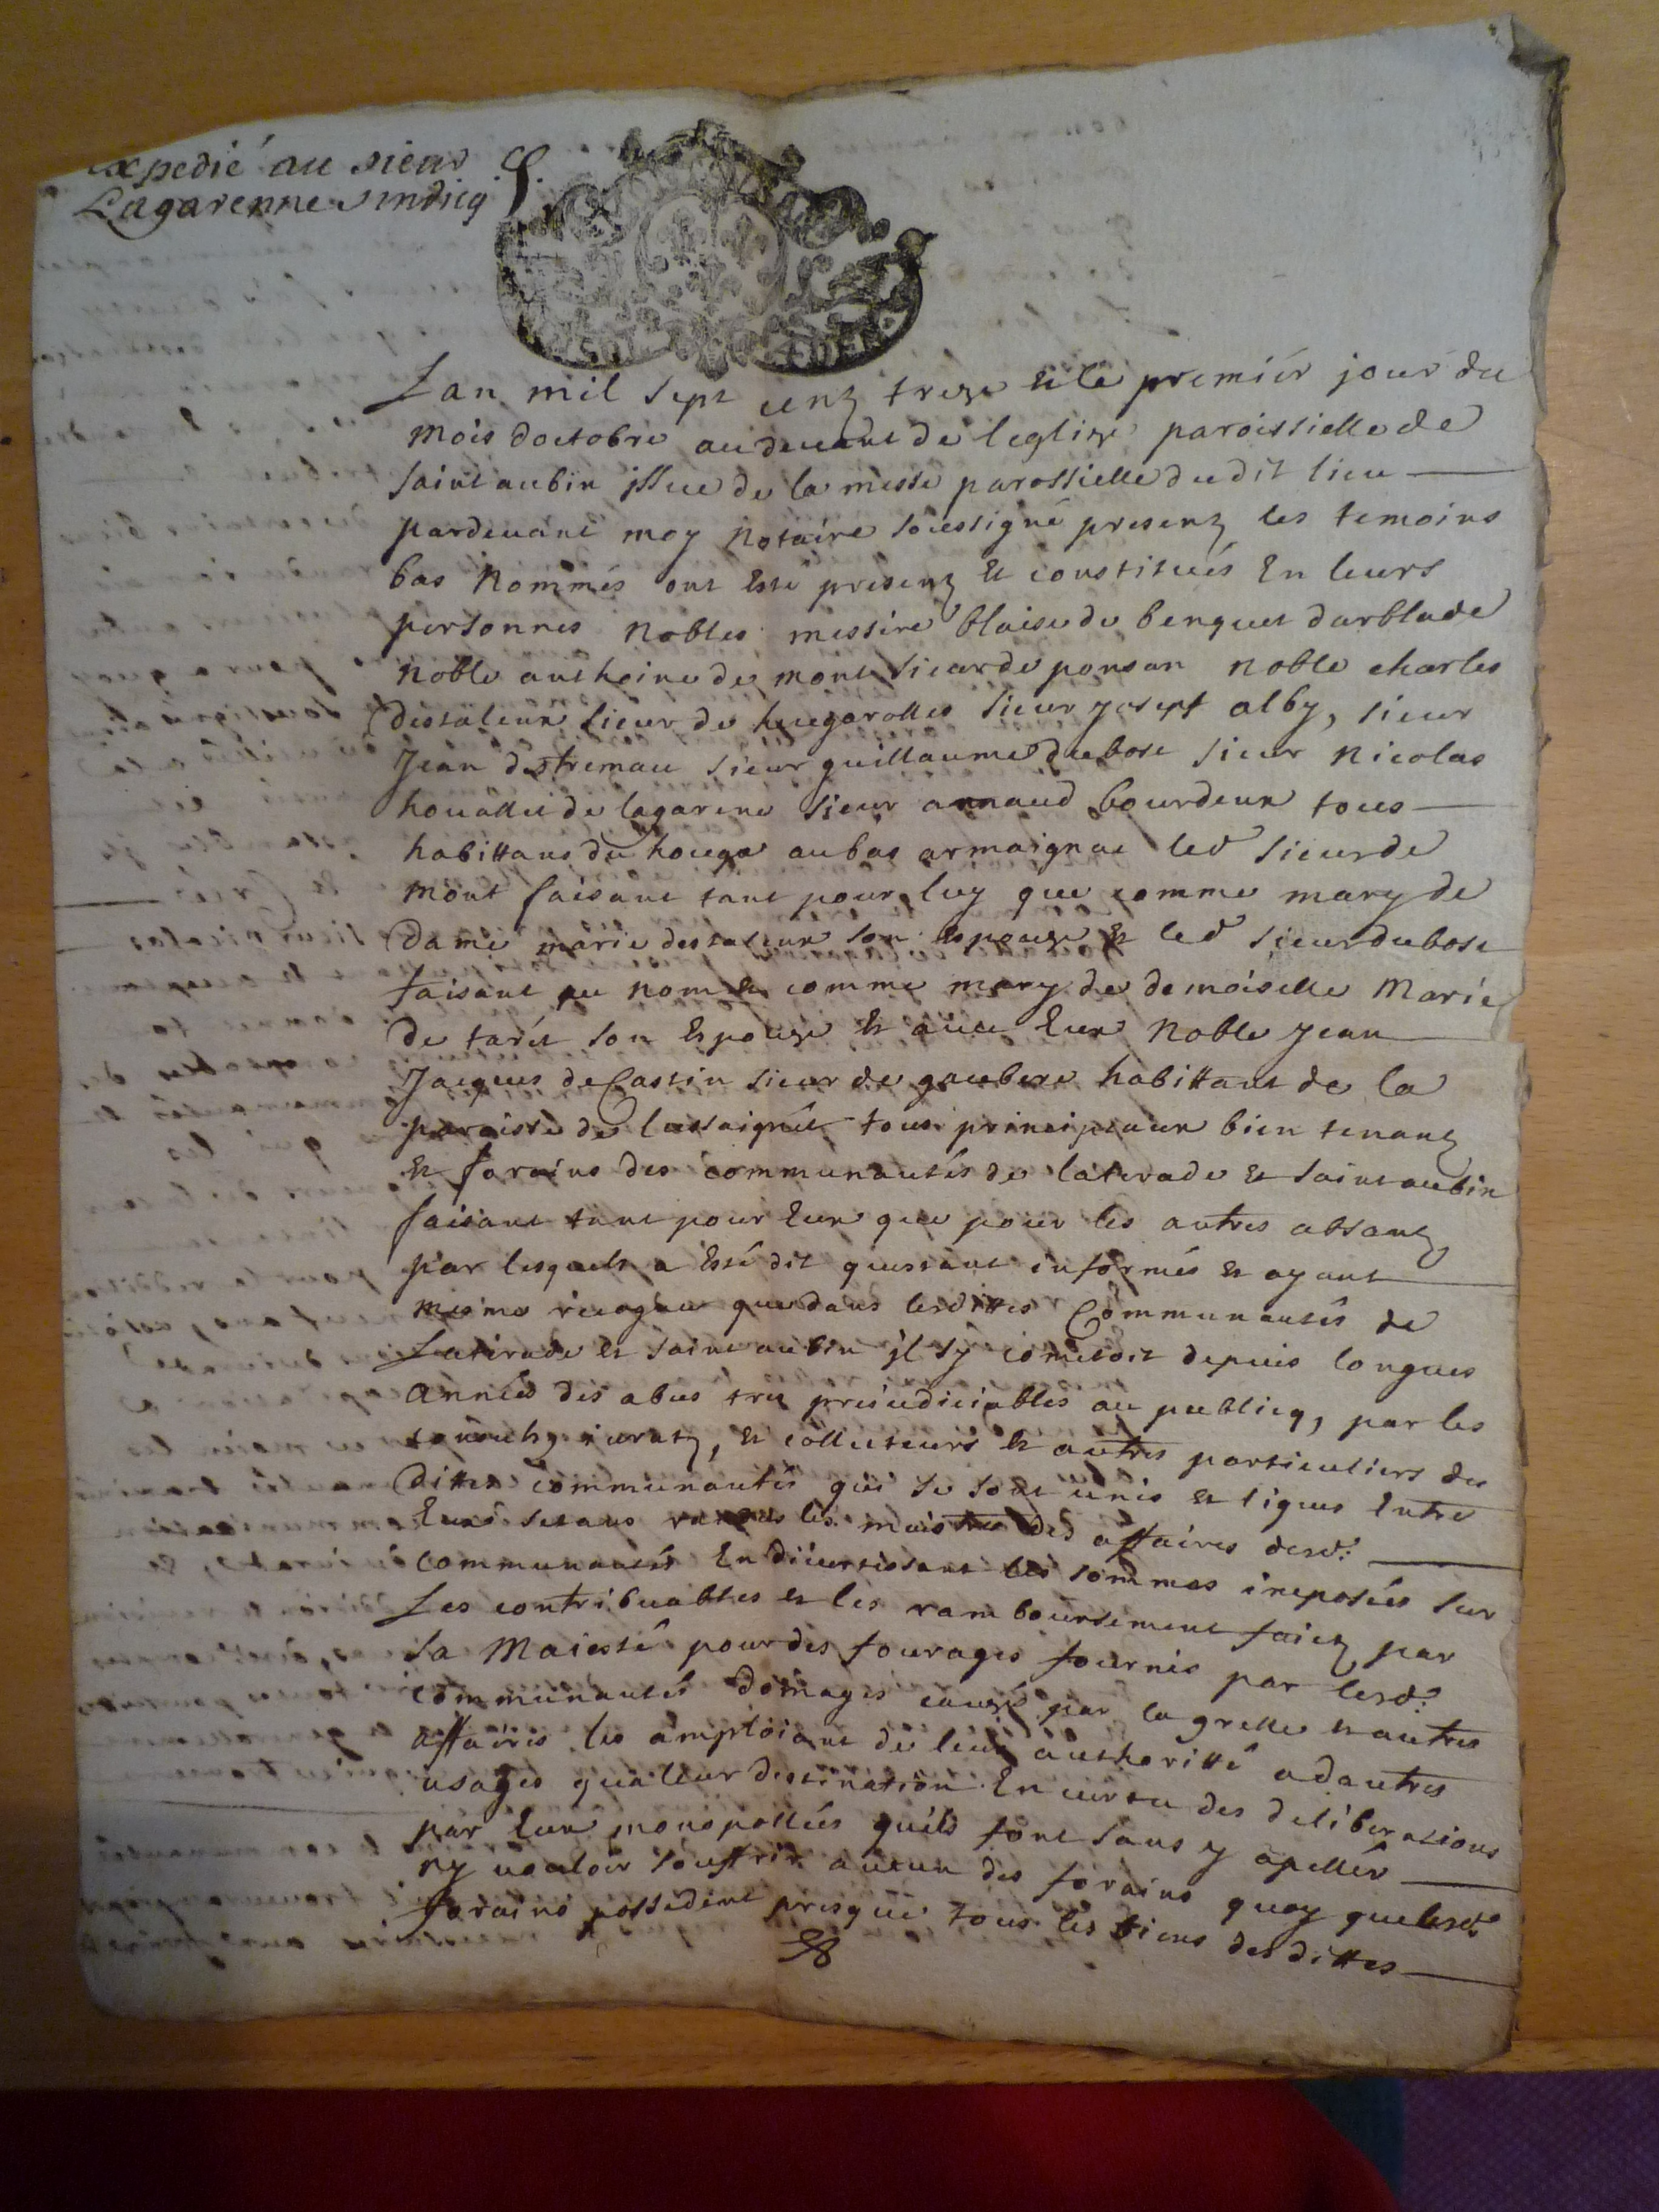 expedié au sieur
Lagarenne sindicq
Lan mil sept cenz treze et le premier jour du
mois doctobre audevant de leglize paroissielle de
saint aubin issue de la messe parossielle dudit lieu
pardevant moy notaire soussigné presenz les temoins
bas nommés ont esté presenz et constitués en leurs
personnes nobles messire blaise de benquet darblade
noble anthoine de mont sieur de ponsan noble charles
destaleux sieur de hugarolles sieur joseph alby, sieur
Jean destremau sieur guillaume dubosc sieur nicolas
houallet de lagarene sieur arnaud bourdeux tous
habittans du houga au bas armaignac led sieur de
mont faisant tant pour luy que comme mary de
dame marie destaleux son espouze et led sieur dubosc
faisant au nom et comme mary de demoiselle Marie
de taret son espouze et avec eux noble jean
Jacques de Cassin sieur de gaubere habittant de la
paroisse de lussaignet tous principaux bien tenanz
et forains des communautés de laterade et saint aubin
faisant tant pour eux que pour les autres absanz
par lesquels a esté dit questant informés et ayant
mesme que dans lesdittes Communautés de
Laterade et saint aubin jl sy cometoit depuis longues
années des abus tres preiudiciables au publicq, par les
iuratz, et collecteurs et autres particuliers des
dittes communautés qui se sont unis et ligues entre
eux les maistres des affaires desd:
communautés en divertissant les sommes imposées sur
Les contribuables et les ramboursement faicz par
sa Maiesté pour des fourages fournis par lesd:
communautés domages causés par la grelle et autres
affaires les amploiant de leur authoritté adautres
usages qua leur destination en vertu des deliberations
par eux monopollées quils font sans y apeller
ny vouloir souffrir aucun des forains quoy que lesd:
forains possedent presque tous les biens desdittes